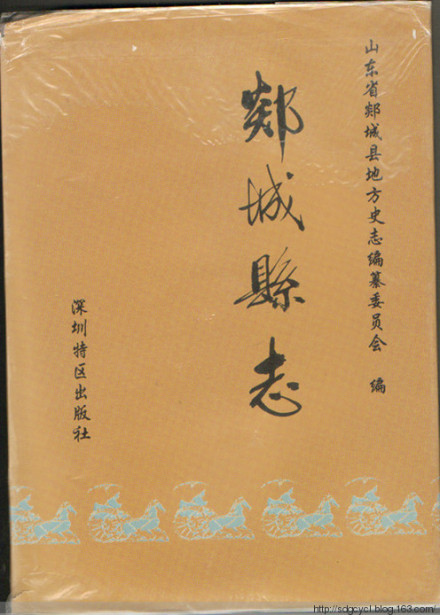 山东省郯城县地方史志编纂委员会 编
郯城縣志
深圳特区出版社
http://sdgcycl.blog.163.com/